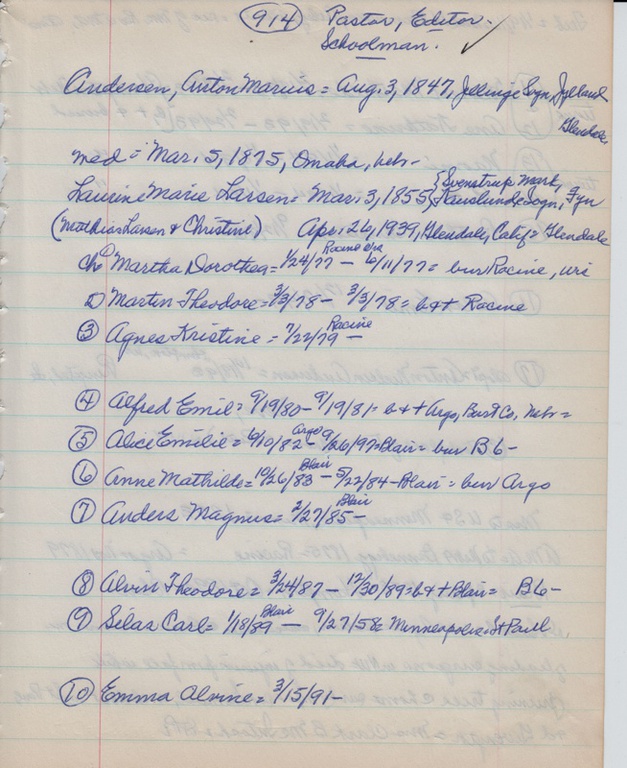 914 Pastor, Editor -
Schoolman.
Andersen, Anton Marius = Aug. 3, 1847, Jellinge Sogn, Jylland
Glendale
med = Mar. 5, 1875, Omaha, Nebr -
Laurine Marie Larsen = Mar. 3, 1855 { Svenstrup Mark,
Sogn, Fyn
(Matthias Larson & Christine) Apr. 26, 1939, Glendale, Calif = Glendale
Racine
Martha Dorothea = 1/24/77 - 6/11/77 = bur Racine, Wis
2) Martin Theodore = 3/3/78 - 3/3/78 = b&+ Racine
Racine
3 Agnes Kristine = 7/22/79 -
4 Alfred Emil = 9/19/80 - 9/19/81 = b&+ Argo, Burt Co, Nebr =
Argo
5 Alice Emilie = 6/10/82 - 9/26/97 = Blair = bur B6 -
Blair
6 Anne Mathilde = 10/26/83 - 5/22/84 - Blair = bur Argo
Blair
7 Anders Magnus = 2/27/85 -
8 Alvin Theodore = 3/24/87 - 12/30/89 = b&+ Blair = B6 -
Blair
9 Silas Carl = 1/18/89 - 9/27/58 = Minneapolis = St Paul
10 Emma Alvine = 3/15/91 -